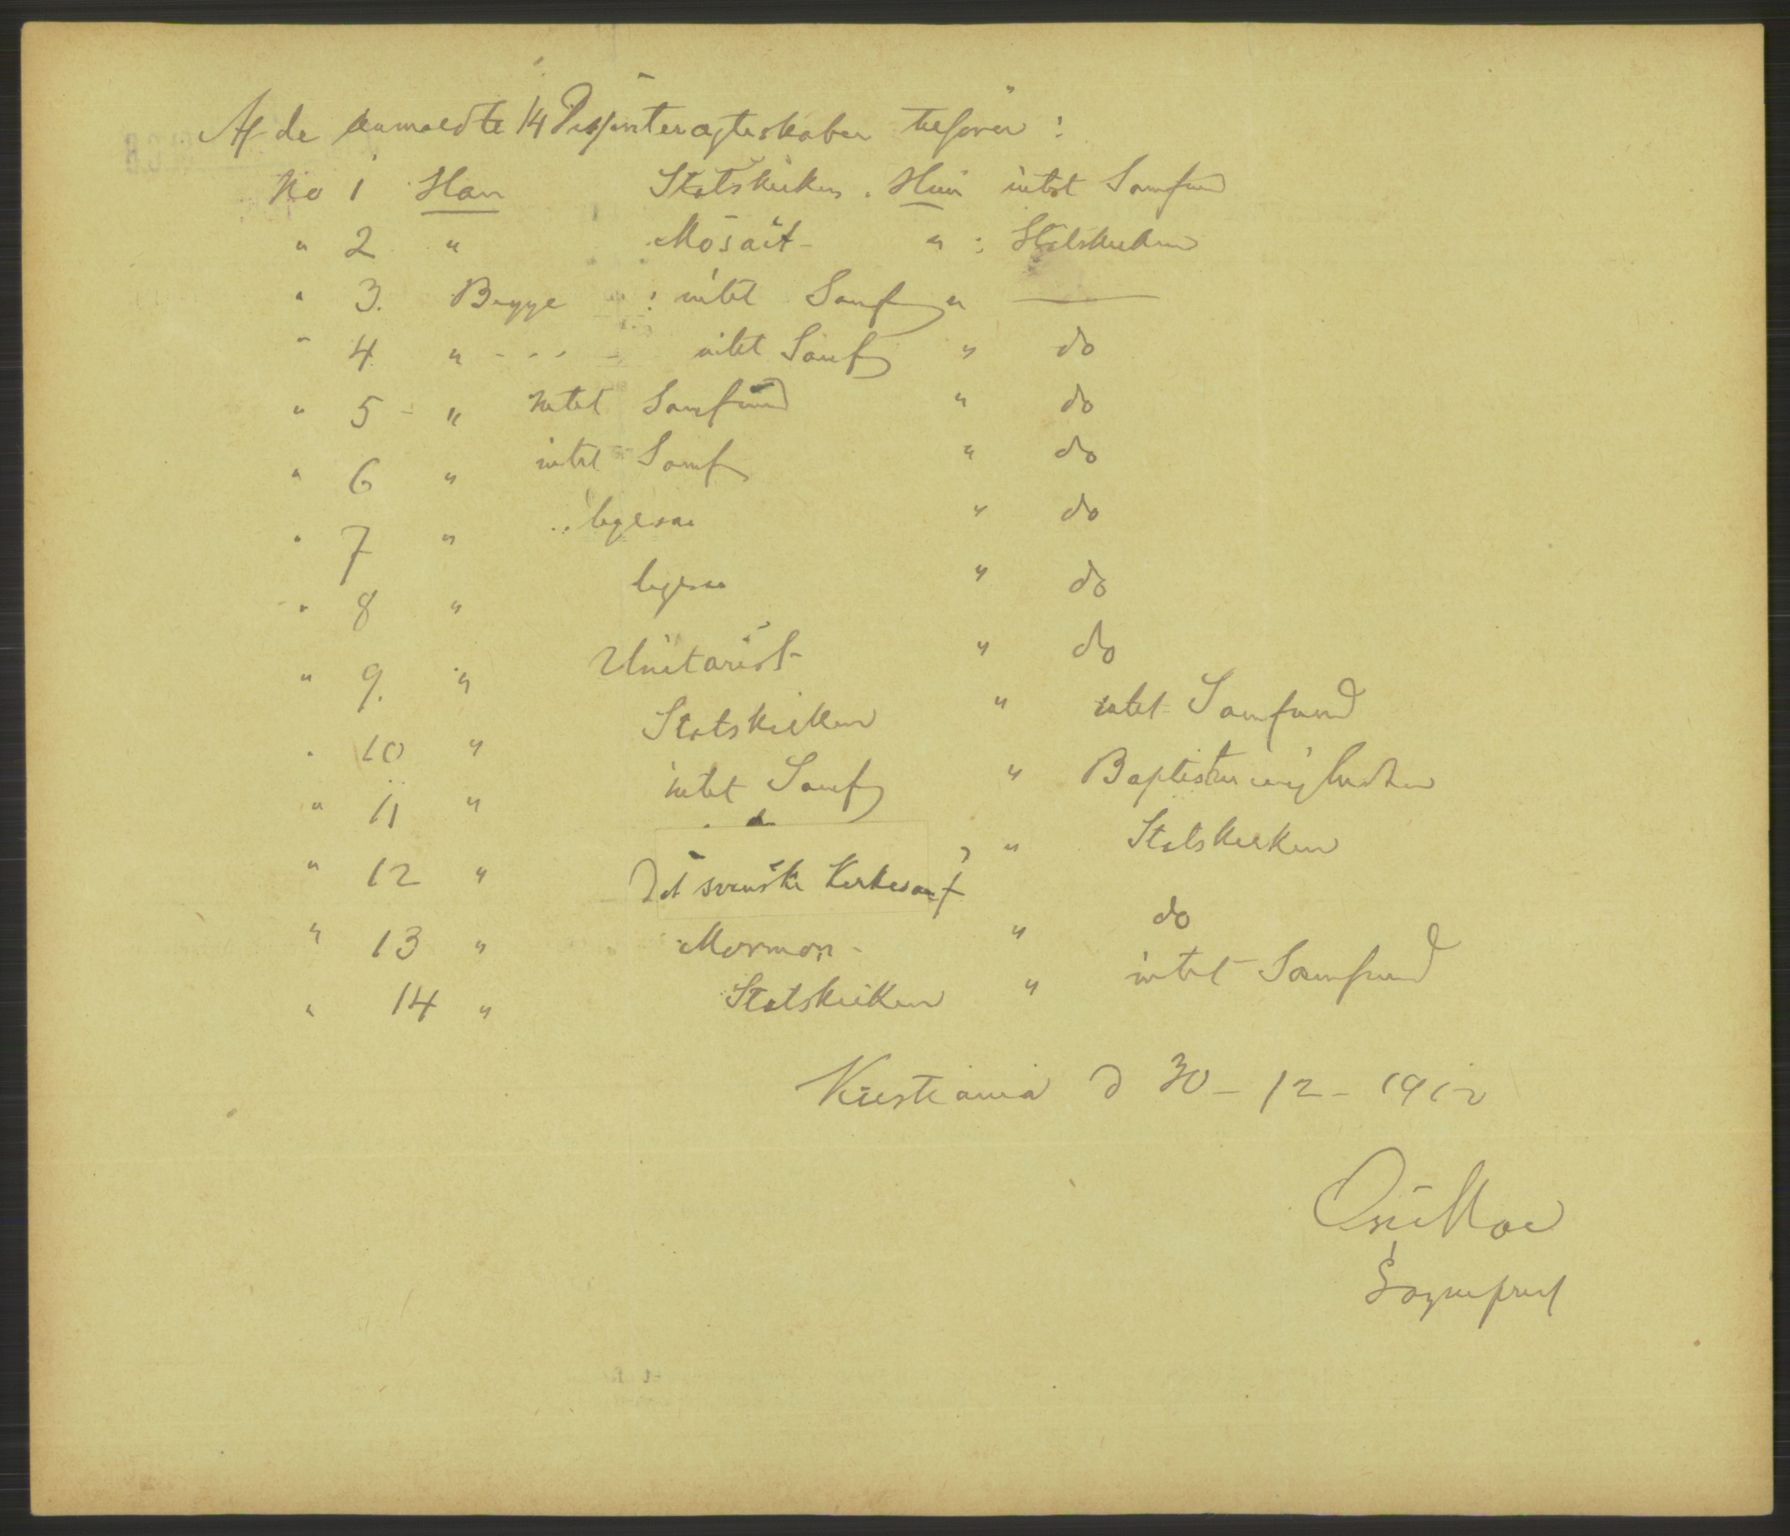 Af de anmeldte 14 Dissenterægteskaber tilhører :
No 1 Han Statskirken . Hun intet Samfund
" 2 " Mosait " : Statskirken
" 3. Begge : intet Samf " —
" 4 " - - - - intet Samf " do
" 5 - " intet Samfund " do
" 6 " intet Samf " do
" 7 " ligesaa " do
" 8 " ligesaa " do
" 9. " Unitarist " do
" 10 " Statskirken " intet Samfund
" 11 " intet Samf " Baptistmenigheden
" 12 " Det svenske Kirkesamf " Statskirken
" 13 " Mormon - " do
" 14 " Statskirken " intet Samfund
Kristiania d 30 - 12 - 1912
Moe
Sognepræst